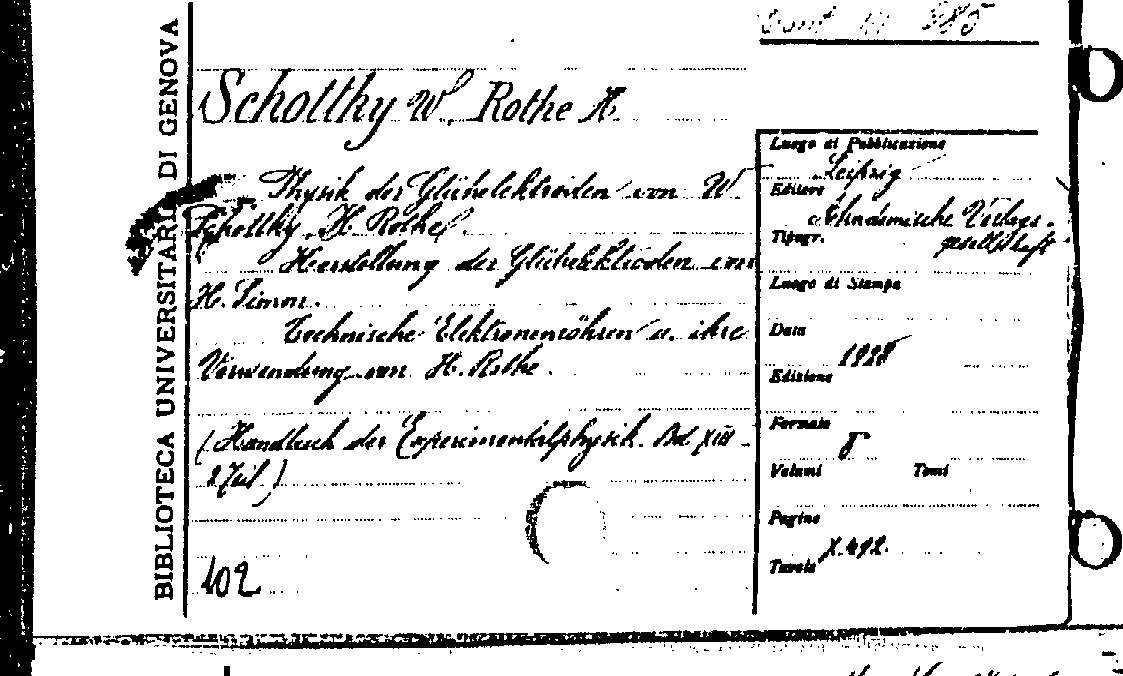 BIBLIOTECA UNIVERSITARIA DI GENOVA
Schottky W. Rothe H.
Physik der Glühelektroden von W
Schottky, H. Rothe.
Herstellung der Glühelektroden von
H. Simon.
Technische Elektronenröhren u. ihre
Verwendung von H. Rothe.
(Handbuch der Experimentalphysik. Bd XIII
2 Teil)
102
Luogo di Pubblicazione
Leipzig
Editore
Akademische Verlags-
gesellschaft
Tipogr.
Luogo di Stampa
Data
1928
Edizione
Formato
8
Volumi Tomi
Pagine
X. 492.
Tavole